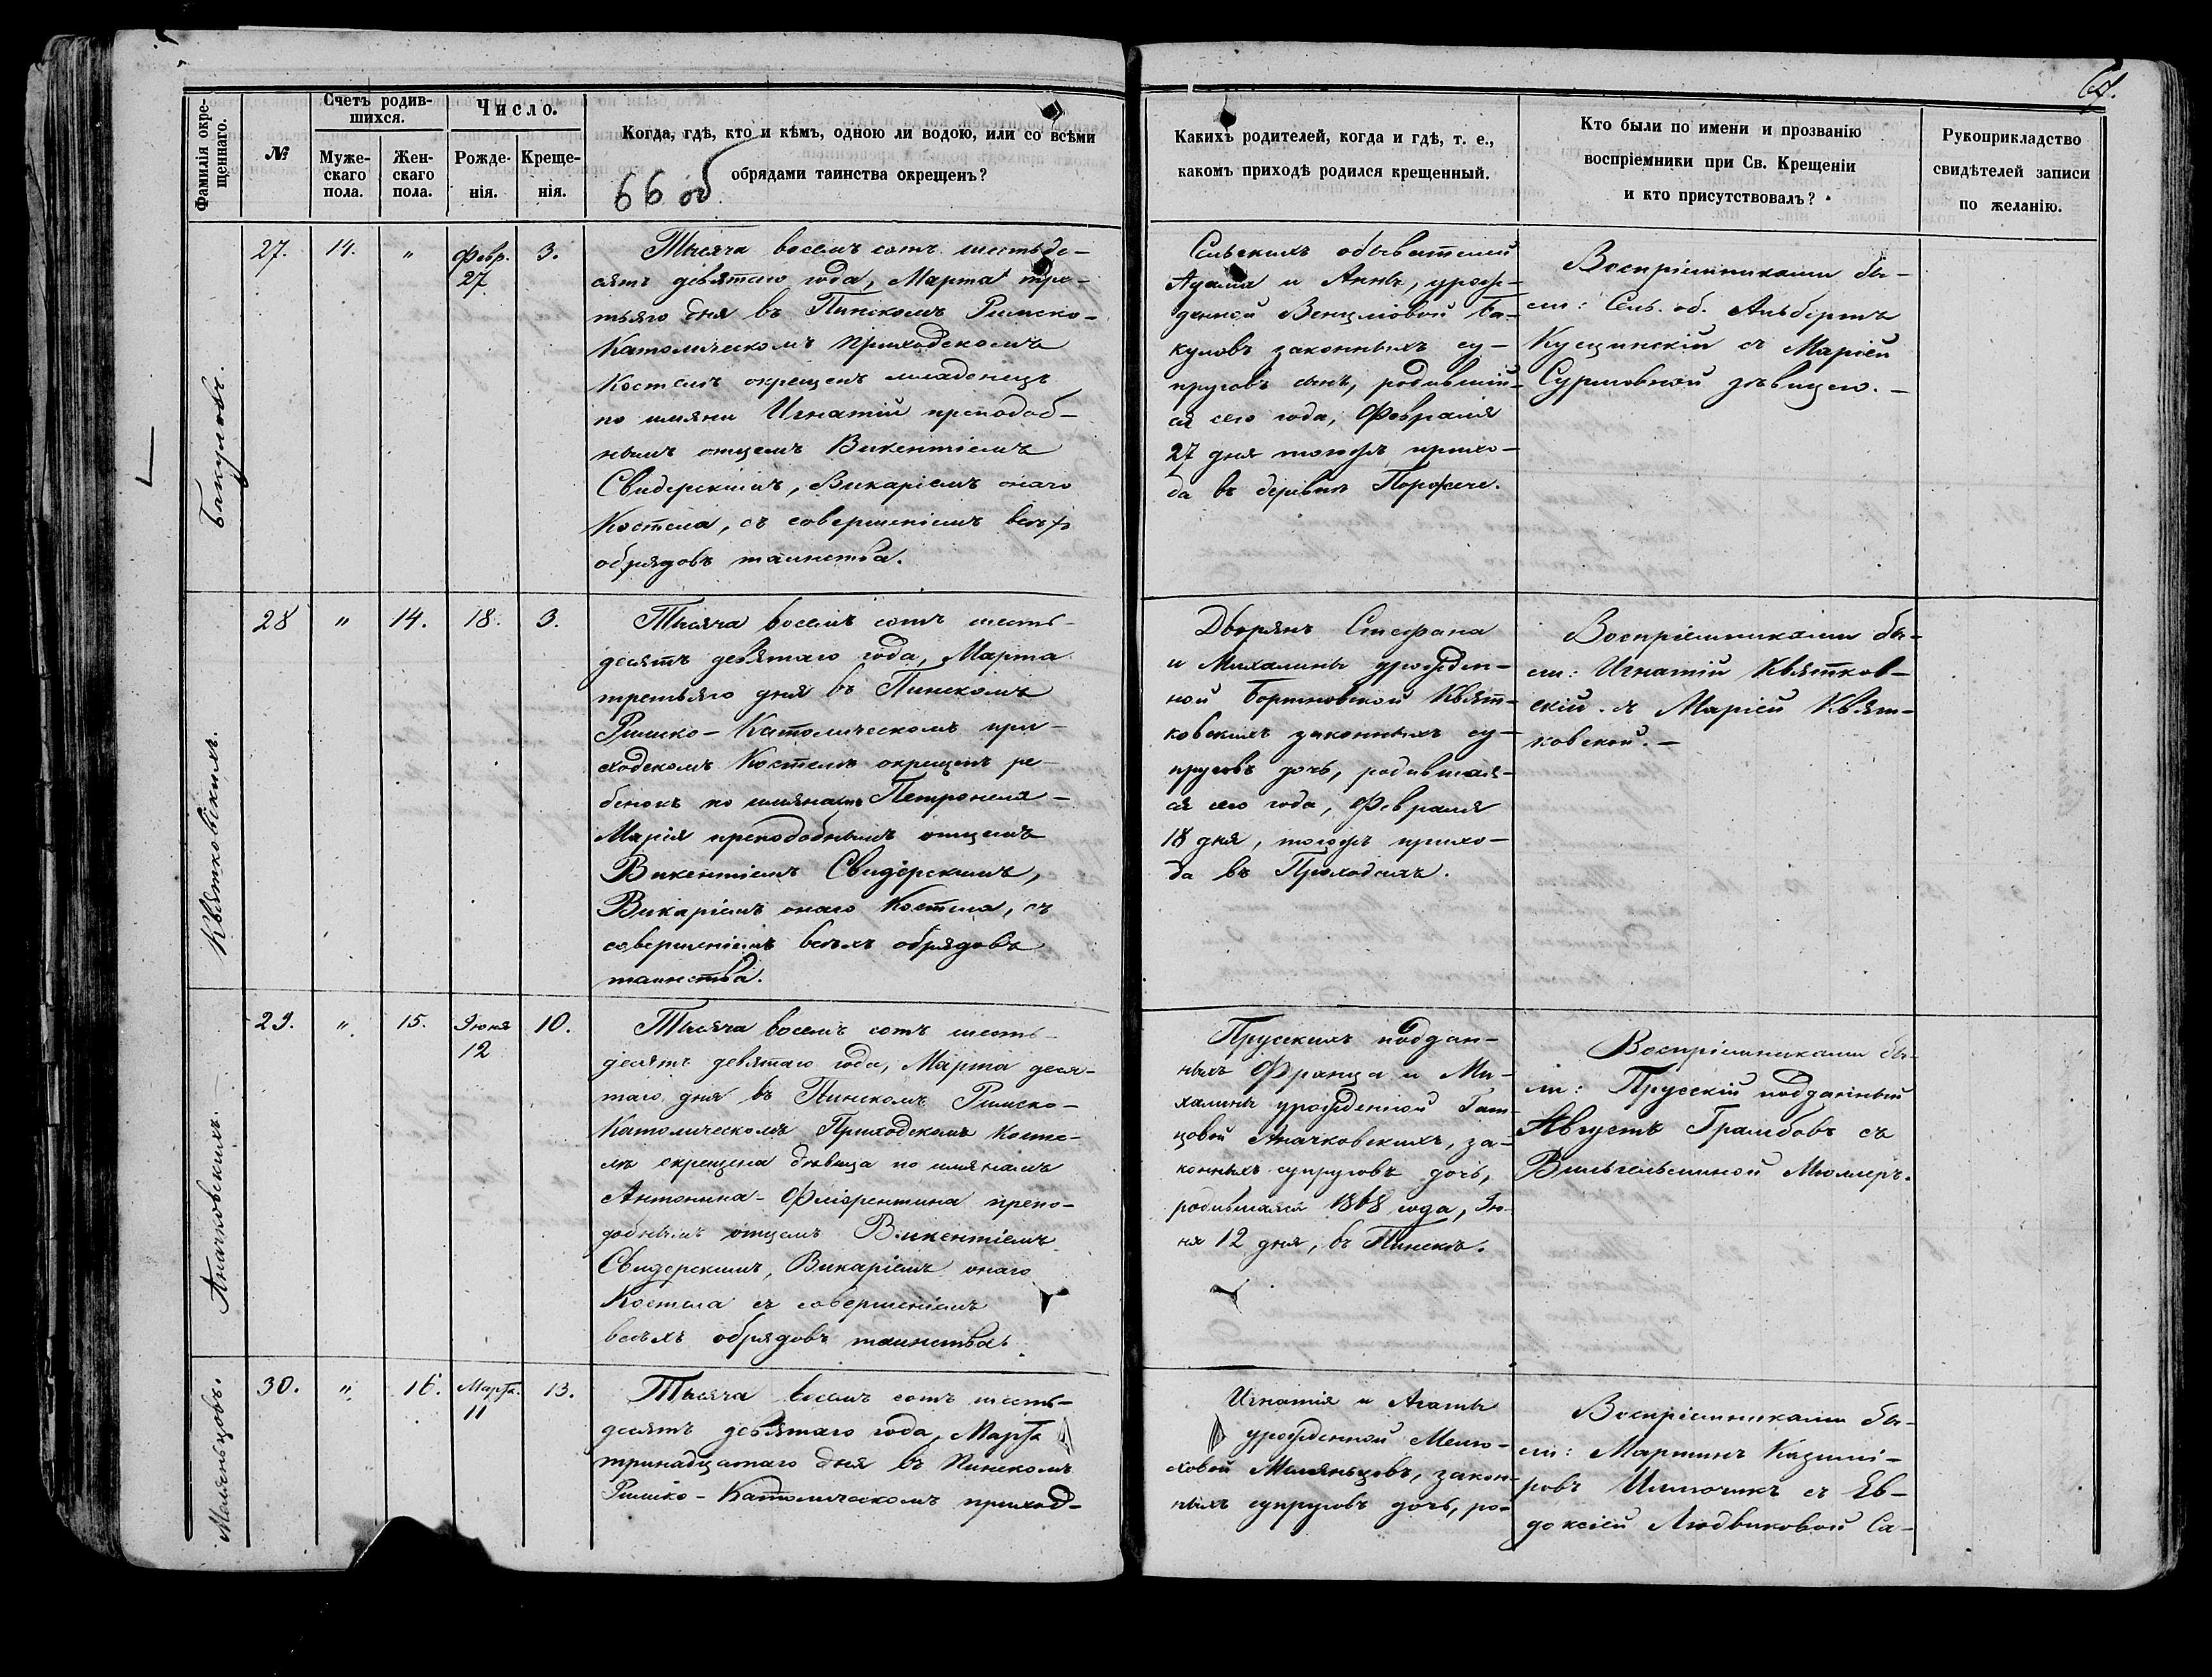 67.
Фамилія окре-
щеннаго.
№
Счетъ родив-
шихся.
Муже-
скаго
пола.
Жен-
скаго
пола.
Число.
Рожде-
нія.
Креще-
нія.
Когда, гдѣ, кто и кѣмъ, одною ли водою, или со всѣми
обрядами таинства окрещенъ?
66 об.
Какихъ родителей, когда и гдѣ, т. е.,
какомъ приходѣ родился крещенный.
Кто были по имени и прозванію
воспріемники при Св. Крещеніи
и кто присутствовалъ?
Рукоприкладство
свидѣтелей записи
по желанію.
Бакуловъ.
27.
14.
"
Февр.
27
3.
Тысяча восемъ сотъ шестьде-
сятъ девятаго года, Марта тре-
тьяго дня въ Пинскомъ Римско-
Католическомъ Приходскомъ
Костелѣ окрещенъ младенецъ
по имяни Игнатій преподоб-
нымъ отцемъ Викентіемъ
Свидерскимъ, Викаріемъ онаго
Костела, съ совершеніемъ всѣхъ
обрядовъ таинства.
Сельскихъ обывателей
Адама и Анны, урож-
денной Венцлювой Ба-
куловъ законныхъ су-
пруговъ сынъ, родившій-
ся сего года, Февраля
27 дня тогожъ прихо-
да въ деревни Порѣчье.
Воспріемниками бы-
ли: Сель. об. Альбертъ
Кущинскій съ Маріей
Суриовной дѣвицею. —
Квятковскихъ.
28
"
14.
18.
3.
Тысяча восемъ сотъ шесть-
десятъ девятаго года, Марта
третьяго дня въ Пинскомъ
Римско-Католическомъ при-
ходскомъ Костелѣ окрещенъ ре-
бенокъ по имянамъ Петронеля-
Марія преподобнымъ отцемъ
Викентіемъ Свидерскимъ,
Викаріемъ онаго Костела, съ
совершеніемъ всѣхъ обрядовъ
таинства.
Дворянъ Стефана
и Михалины урожден-
ной Бортновской Квят-
ковскихъ законныхъ су-
пруговъ дочь, родившая-
ся сего года, Февраля
18 дня, тогожъ прихо-
да въ Приходахъ.
Воспріемниками бы-
ли: Игнатій Квятков-
скій съ Маріей Квят-
ковской. —
Аначковскихъ.
29.
"
15.
Іюня
12
10.
Тысяча восемъ сотъ шесть-
десятъ девятаго года, Марта деся-
таго дня въ Пинскомъ Римско-
Католическомъ Приходскомъ Косте-
лѣ окрещена дѣвица по имянамъ
Антонина-Флорентина препо-
добнымъ отцемъ Викентіемъ
Свидерскимъ, Викаріемъ онаго
Костела съ совершеніемъ
всѣхъ обрядовъ таинства.
Прусскихъ поддан-
ныхъ Франца и Ми-
халины урожденной Гат-
цовой Аначковскихъ, за-
конныхъ супруговъ дочь,
родившаяся 1868 года, Ію-
ня 12 дня, въ Пинскѣ.
Воспріемниками бы-
ли: Прусскій подданный
Августъ Грамбовъ съ
Вильгельминой Мюллеръ.
Меляньцовъ.
30.
"
16.
Марта
11
13.
Тысяча восемъ сотъ шесть-
десятъ девятаго года, Марта
тринадцатаго дня въ Пинскомъ
Римско-Католическомъ приход-
Игнатія и Агаты
урожденной Мелю-
ховой Меляньцовъ, закон-
ныхъ супруговъ дочь, ро-
Воспріемниками бы-
ли: Мартинъ Казими-
ровъ Илючикъ съ Ев-
докіей Людвиковой Са-